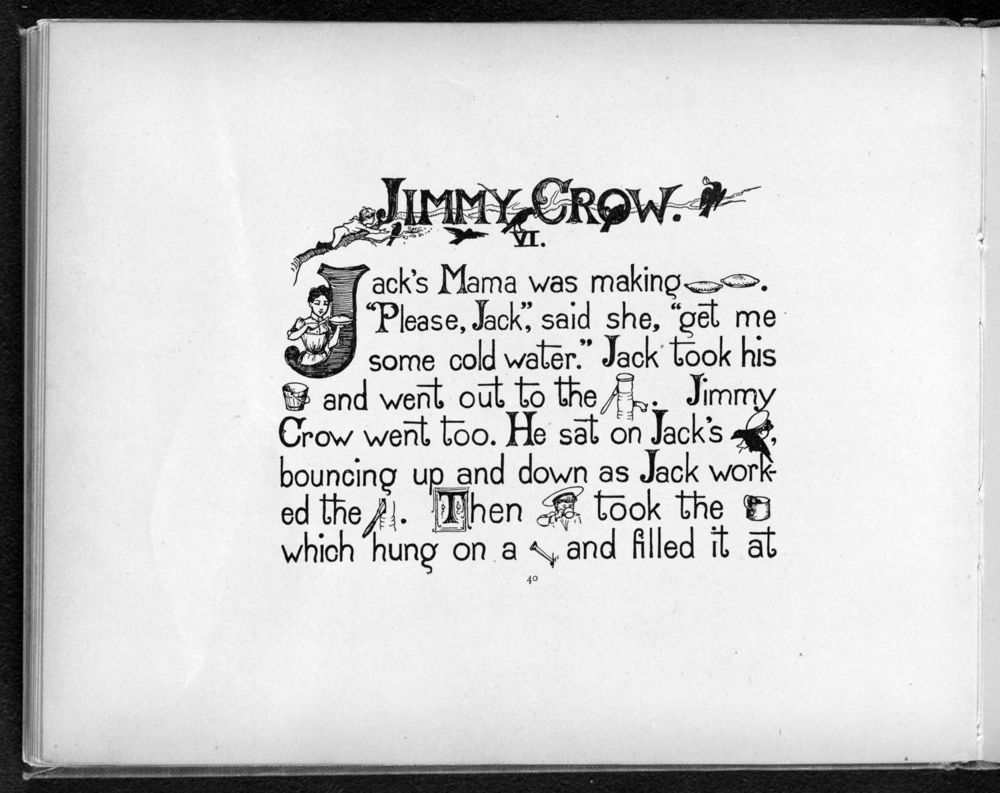 JIMMY CROW.
VI.
Jack's Mama was making .
"Please, Jack", said she, "get me
some cold water." Jack took his
and went out to the . Jimmy
Crow went too. He sat on Jack's ,
bouncing up and down as Jack work-
ed the . Then took the
which hung on a and filled it at
40